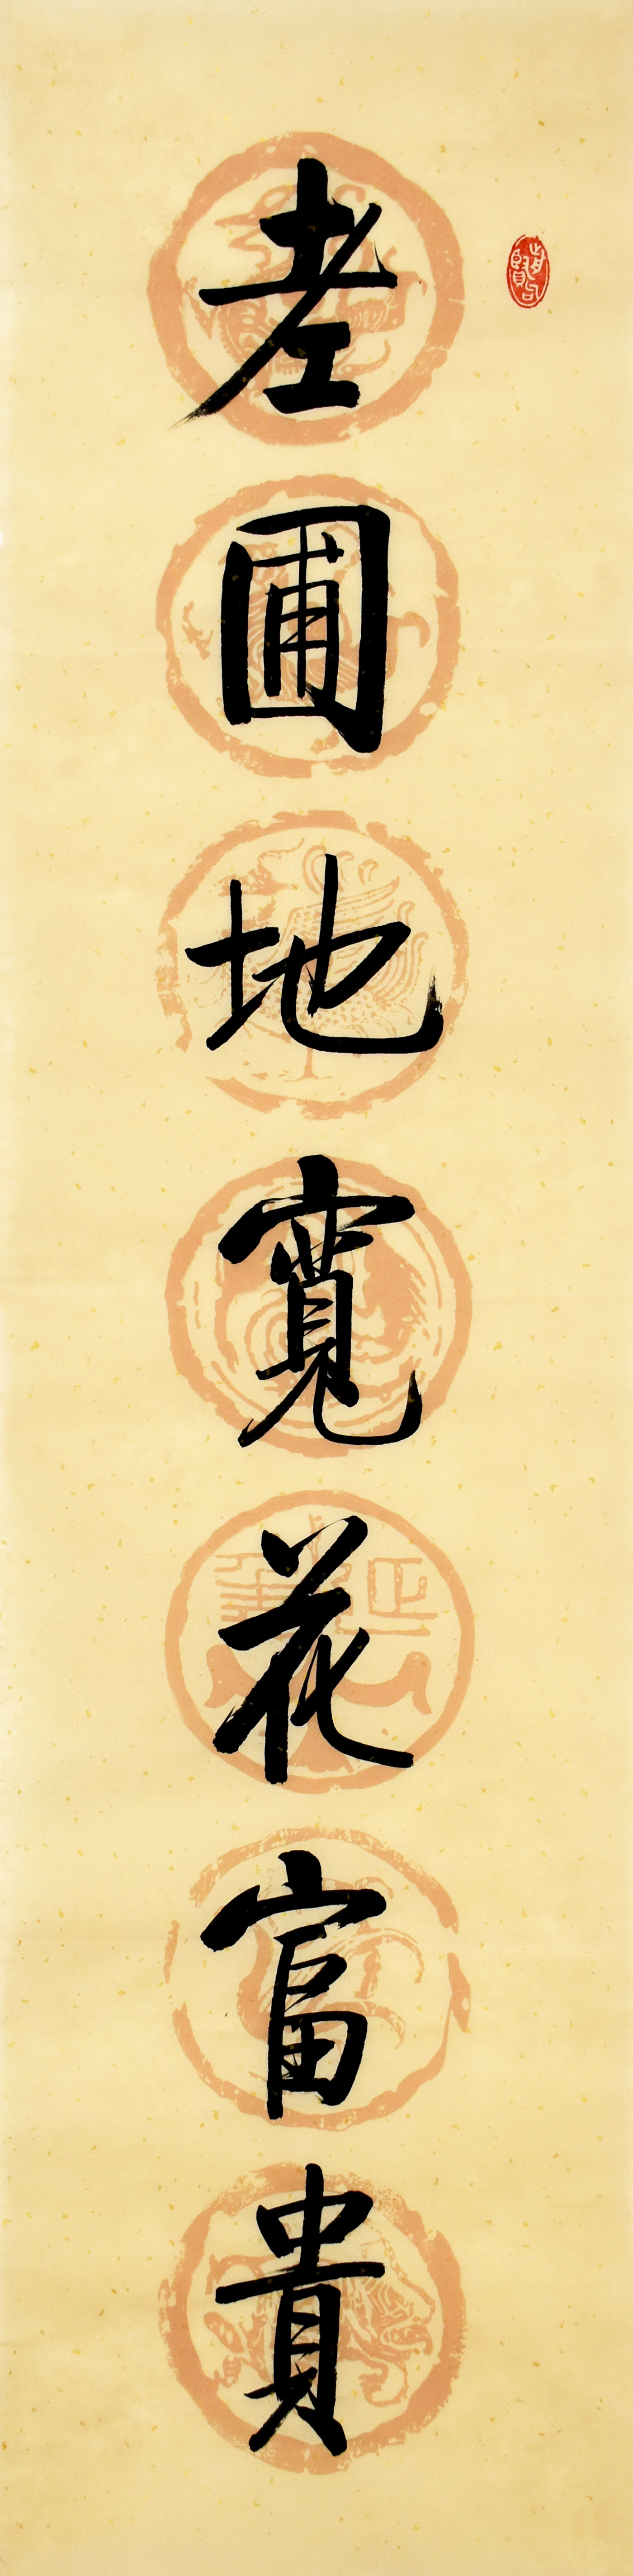 老圃地寬花富貴